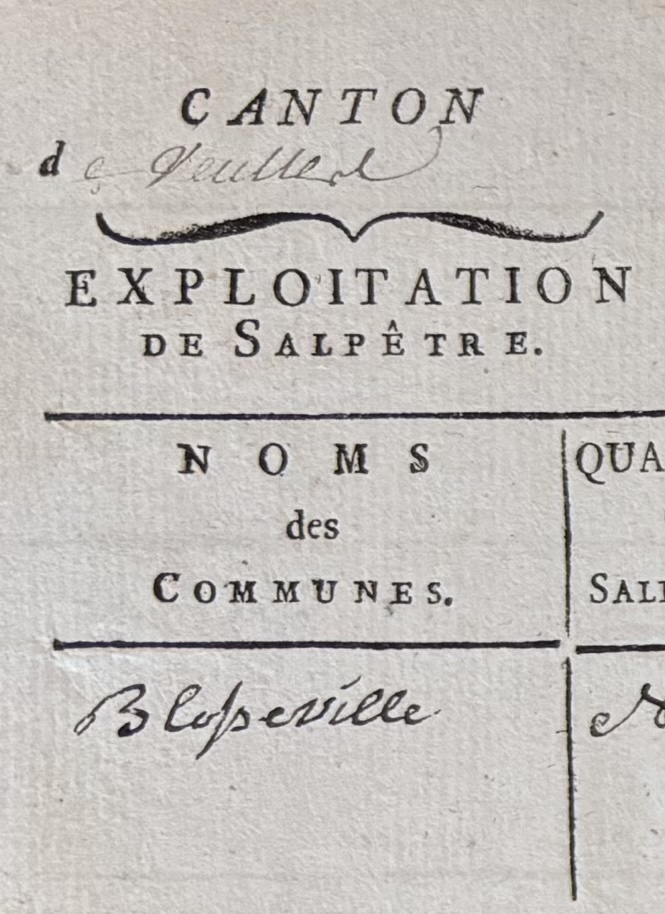 CANTON
de Veulles
EXPLOITATION
DE SALPÊTRE.
NOMS
des
COMMUNES.
QUA
SAL
Blosseville